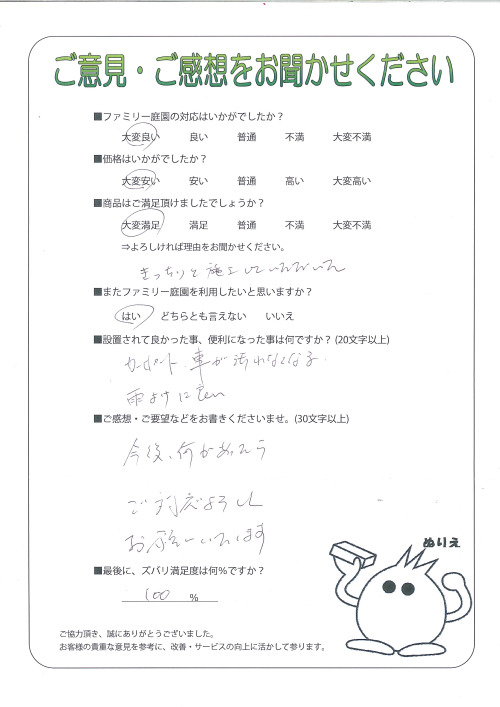 ご意見・ご感想をお聞かせください
■ファミリー庭園の対応はいかがでしたか？
大変良い 良い 普通 不満 大変不満
■価格はいかがでしたか？
大変安い 安い 普通 高い 大変高い
■商品はご満足頂けましたでしょうか？
大変満足 満足 普通 不満 大変不満
⇒よろしければ理由をお聞かせください。
きっちりと施工していただいた
■またファミリー庭園を利用したいと思いますか？
はい どちらとも言えない いいえ
■設置されて良かった事、便利になった事は何ですか？(20文字以上)
カーポート 車が汚れなくなる
雨よけに良い
■ご感想・ご要望などをお書きくださいませ。(30文字以上)
今後、何かあったら
ご対応よろしく
お願いいたします
ぬりえ
■最後に、ズバリ満足度は何%ですか？
100 %
ご協力頂き、誠にありがとうございました。
お客様の貴重な意見を参考に、改善・サービスの向上に活かして参ります。